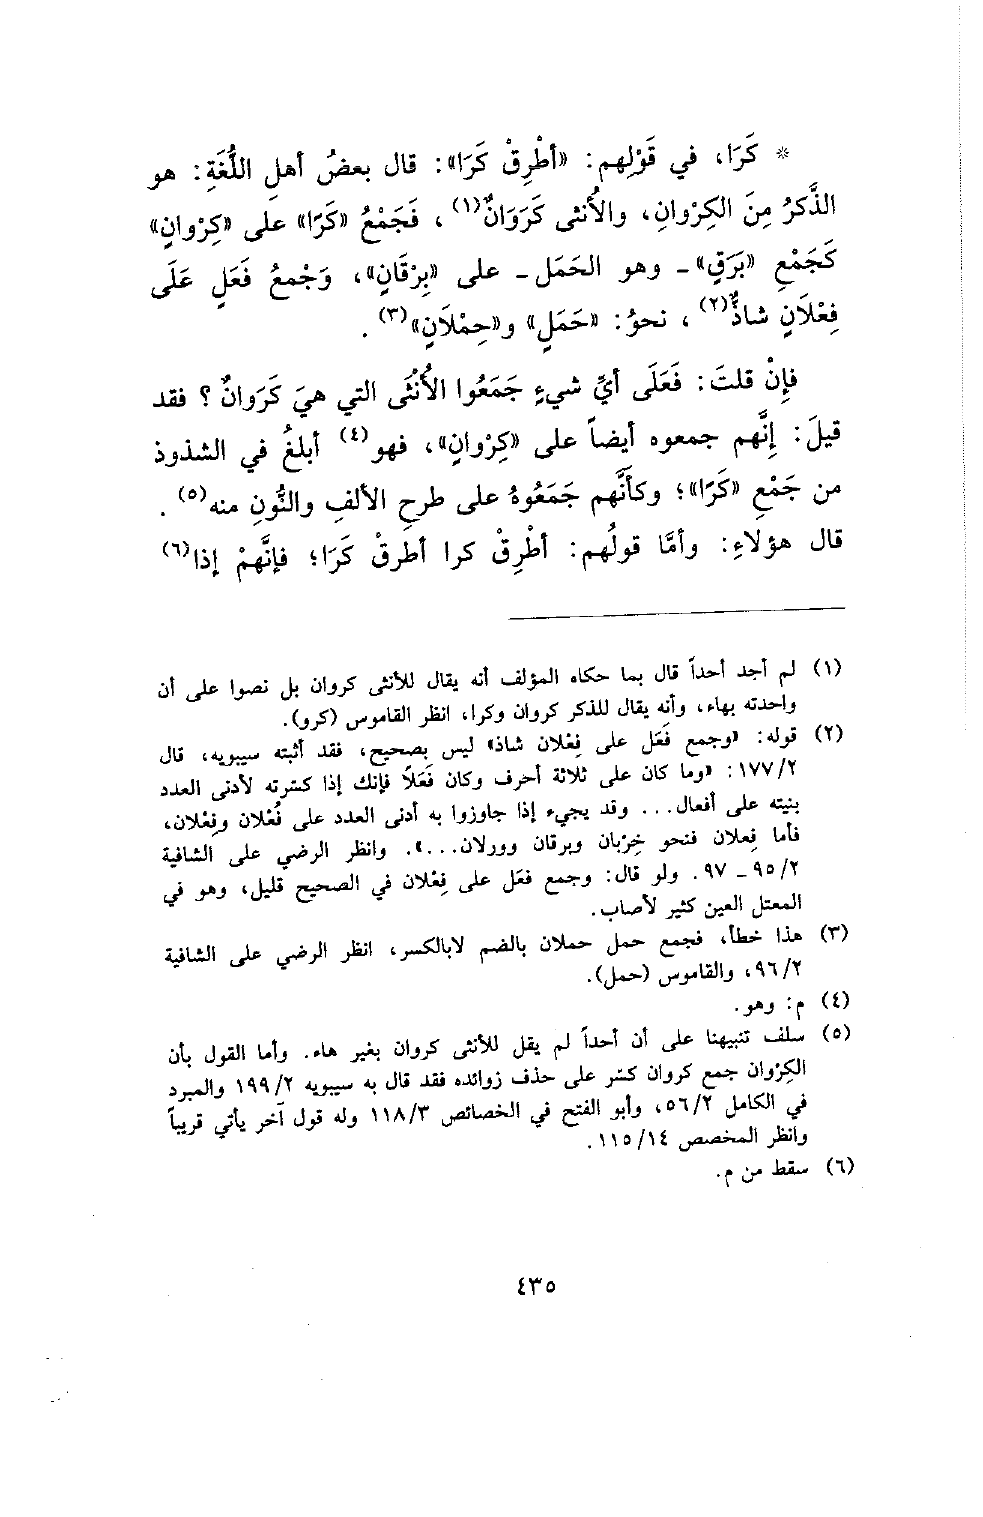 * كَرَا، في قَوْلِهم: «أطْرِقْ كَرَا»: قال بعضُ أهلِ اللُّغَةِ: هو
الذَّكرُ مِنَ الكِرْوانِ، والأُنثى كَرَوَانٌ(١)، فَجَمْعُ «كَرًا» على «كِرْوانٍ»
كَجَمْعِ «بَرَقٍ» - وهو الحَمَل - على «بِرْقَانٍ»، وَجْمعُ فَعَلٍ عَلَى
فِعْلَانٍ شاذٌّ(٢)، نحوُ: «حَمَلٍ» و«حِمْلَانٍ»(٣).
فإِنْ قلتَ: فَعَلَى أيِّ شيءٍ جَمَعُوا الأُنْثَى التي هيَ كَرَوانٌ؟ فقد
قيلَ: إِنَّهم جمعوه أيضاً على «كِرْوانٍ»، فهو(٤) أبلغُ في الشذوذ
من جَمْعِ «كَرًا»؛ وكأَنَّهم جَمَعُوهُ على طرحِ الألفِ والنُّونِ منه(٥).
قال هؤلاءِ: وأمَّا قولُهم: أطْرِقْ كرا أطرقْ كَرَا؛ فإنَّهمْ إذا(٦)
(١) لم أجد أحداً قال بما حكاه المؤلف أنه يقال للأنثى كروان بل نصوا على أن
واحدته بهاء، وأنه يقال للذكر كروان وكرا، انظر القاموس (كرو).
(٢) قوله: «وجمع فَعَل على فِعْلان شاذ» ليس بصحيح، فقد أثبته سيبويه، قال
١٧٧/٢: «وما كان على ثلاثة أحرف وكان فَعَلاً فإنك إذا كسّرته لأدنى العدد
بنيته على أفعال... وقد يجيء إذا جاوزوا به أدنى العدد على فُعْلان وفِعْلان،
فأما فِعلان فنحو خِرْبان وبرقان وورلان...». وانظر الرضي على الشافية
٩٥/٢ - ٩٧. ولو قال: وجمع فعَل على فِعْلان في الصحيح قليل، وهو في
المعتل العين كثير لأصاب.
(٣) هذا خطأ، فجمع حمل حملان بالضم لابالكسر، انظر الرضي على الشافية
٩٦/٢، والقاموس (حمل).
(٤) م: وهو.
(٥) سلف تنبيهنا على أن أحداً لم يقل للأنثى كروان بغير هاء. وأما القول بأن
الكِرْوان جمع كروان كسّر على حذف زوائده فقد قال به سيبويه ١٩٩/٢ والمبرد
في الكامل ٥٦/٢، وأبو الفتح في الخصائص ١١٨/٣ وله قول آخر يأتي قريباً
وانظر المخصص ١١٥/١٤.
(٦) سقط من م.
٤٣٥